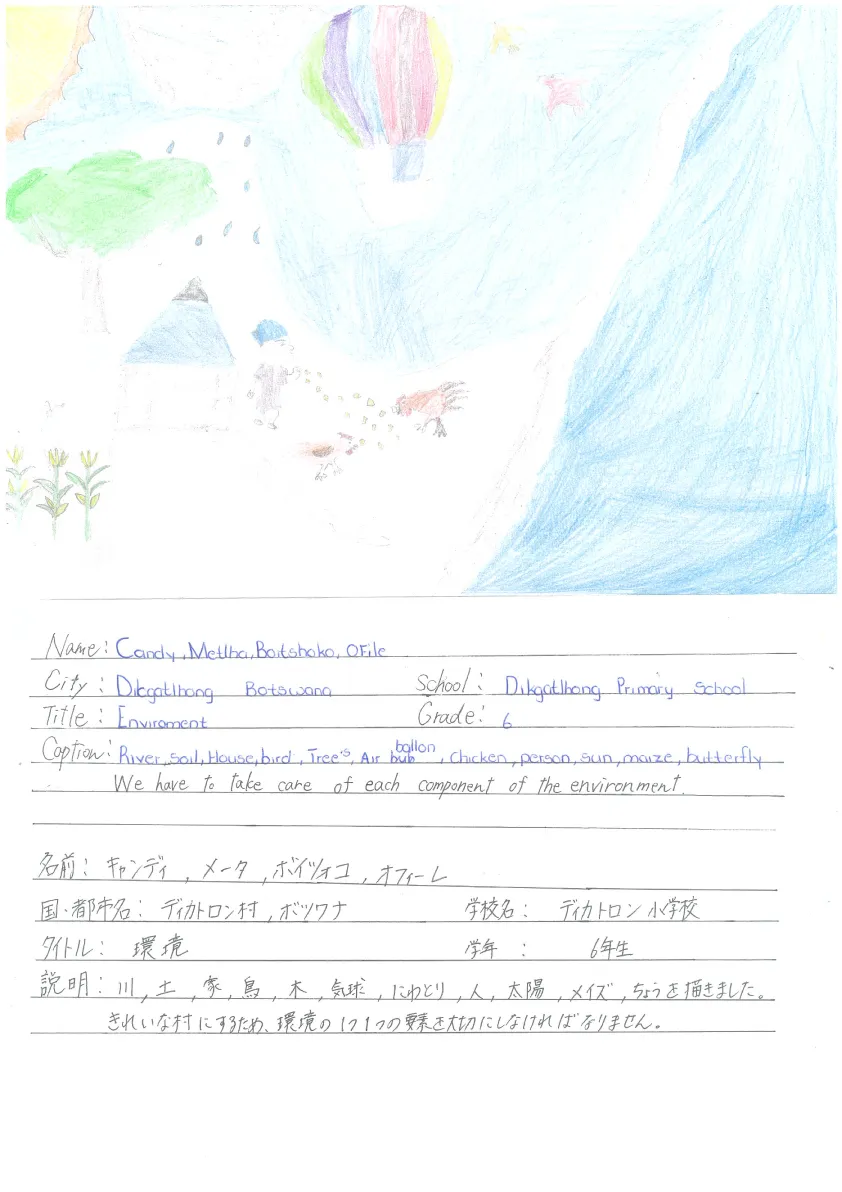 Name: Candy, Metlha, Boitshoko, OFile
City: Dikgatlhong Botswana School: Dikgatlhong Primary School
Title: Enviroment Grade: 6
Caption: River, soil, House, bird, Tree's, Air bub ballon, chicken, person, sun, maize, butterfly
We have to take care of each component of the environment.
名前: キャンディ, メータ, ボイツォコ, オフィーレ
国・都市名: ディカトロン村, ボツワナ 学校名: ディカトロン小学校
タイトル: 環境 学年: 6年生
説明: 川, 土, 家, 鳥, 木, 気球, にわとり, 人, 太陽, メイズ, ちょうを描きました。
きれいな村にするため、環境の1つ1つの要素を大切にしなければなりません。